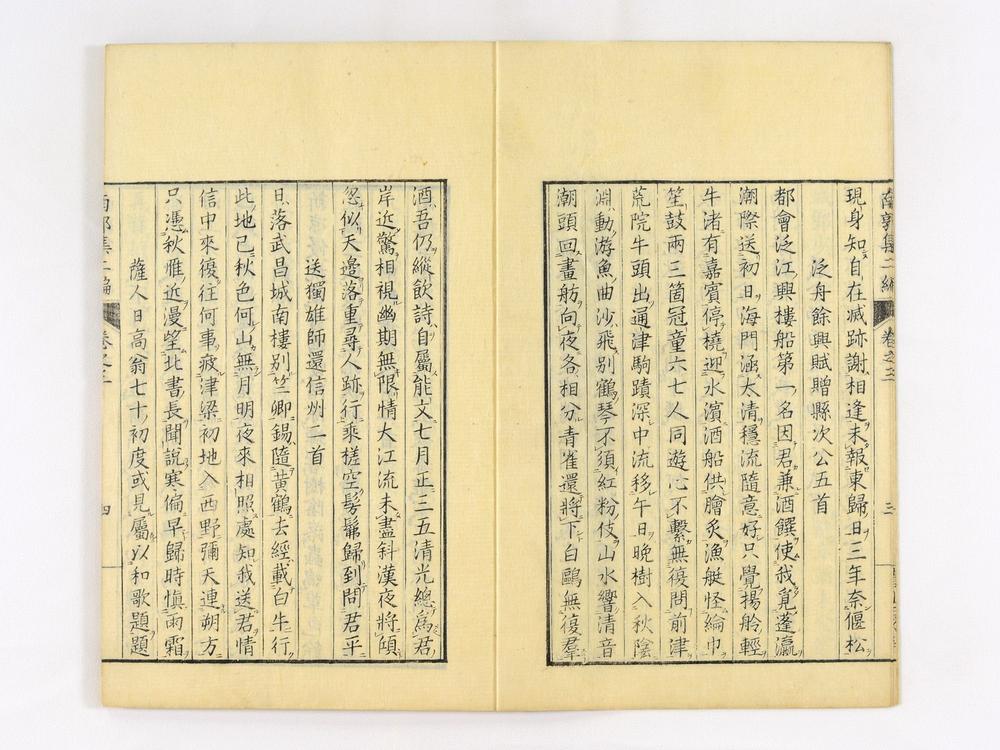 南郭集二編 卷之三 三
現身知自在滅跡謝相逢未報東歸日三年奈偃松
泛舟餘興賦贈縣次公五首
都會泛江興樓船第一名因君兼酒饌使我覓蓬瀛
潮際送初日海門涵太清穩流隨意好只覺揚舲輕
牛渚有嘉賓停橈迎水濱酒船供膾炙漁艇怪綸巾
笙鼓兩三箇冠童六七人同遊心不繫無復問前津
荒院牛頭出通津駒蹟深中流移午日晚樹入秋陰
淵動游魚曲沙飛别鶴琴不須紅粉伎山水響清音
潮頭回畫舫向夜各相分青雀還將下白鷗無復羣
酒吾仍縱飲詩自屬能文七月正三五清光總爲君
岸近驚相視幽期無限情大江流未盡斜漢夜將傾
忽似天邊落重尋人跡行乘槎空髣髴歸到問君平
送獨雄師還信州二首
日落武昌城南樓別竺卿錫隨黃鶴去經載白牛行
此地已秋色何山無月明夜來相照處知我送君情
信中來復往何事疲津梁初地入西野彌天連朔方
只憑秋雁近漫望北書長聞說寒偏早歸時愼雨霜
薩人日高翁七十初度或見屬以和歌題題
南郭集二編 卷之三 四